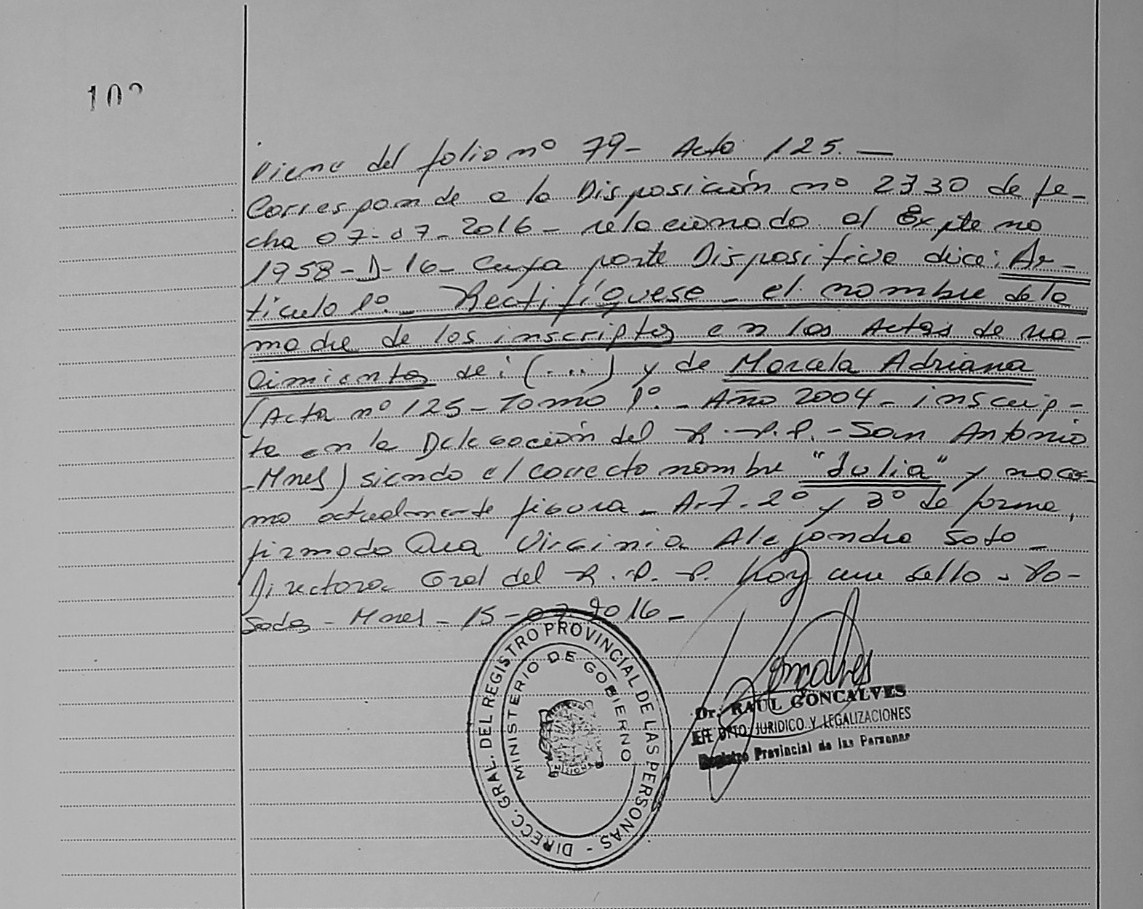 Viene del folio nº 79- Acta 125. —
Corresponde a la Disposición nº 2730 de fe-
cha 07-07-2016- relacionado al Expte nº
1958-D-16- Cuya parte Dispositiva dice: Ar-
ticulo 1º- Rectifíquese- el nombre de la
madre de los inscriptos en las Actas de na-
cimientos de: (...) y de Marcela Adriana
(Acta nº 125- Tomo 1º- Año 2004- inscrip-
ta en la Delegación del R.P.P.- San Antonio
-Mnes) siendo el correcto nombre "Julia" y no co-
mo actualmente figura- Art. 2º y 3º de forma,
firmado Dra Virginia Alejandra Soto-
Directora Gral del R.P.P. Hay un sello- Po-
sadas- Mnes- 15-07-2016-
DIRECC. GRAL. DEL REGISTRO PROVINCIAL DE LAS PERSONAS -
MINISTERIO DE GOBIERNO
MISIONES
Goncalves
Dr. RAUL GONCALVES
JEFE DPTO. JURIDICO Y LEGALIZACIONES
Registro Provincial de las Personas